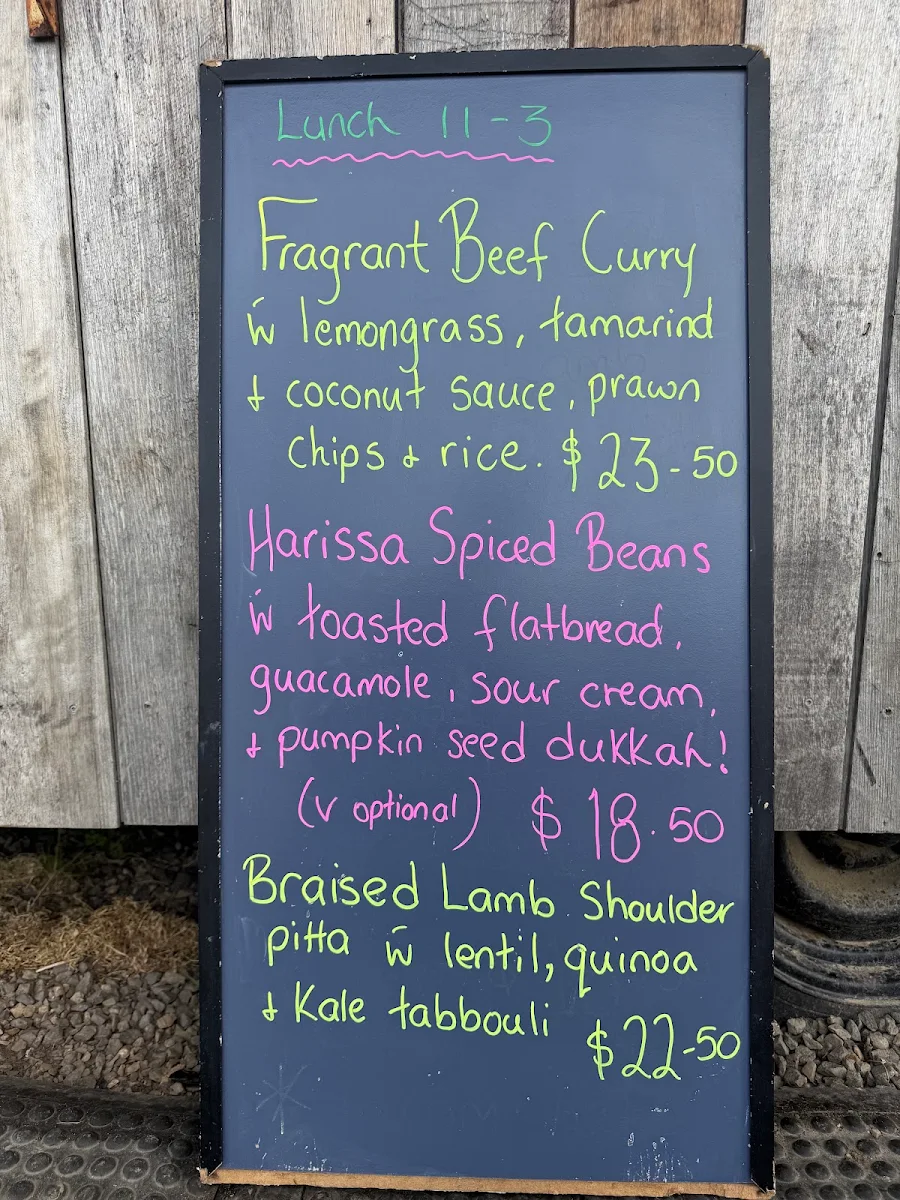 Lunch 11-3
Fragrant Beef Curry
w̄ lemongrass, tamarind
+ coconut sauce, prawn
chips + rice. $23-50
Harissa Spiced Beans
w̄ toasted flatbread,
guacamole, sour cream,
+ pumpkin seed dukkah!
(v optional) $18.50
Braised Lamb Shoulder
pitta w̄ lentil, quinoa
+ Kale tabbouli
$22-50